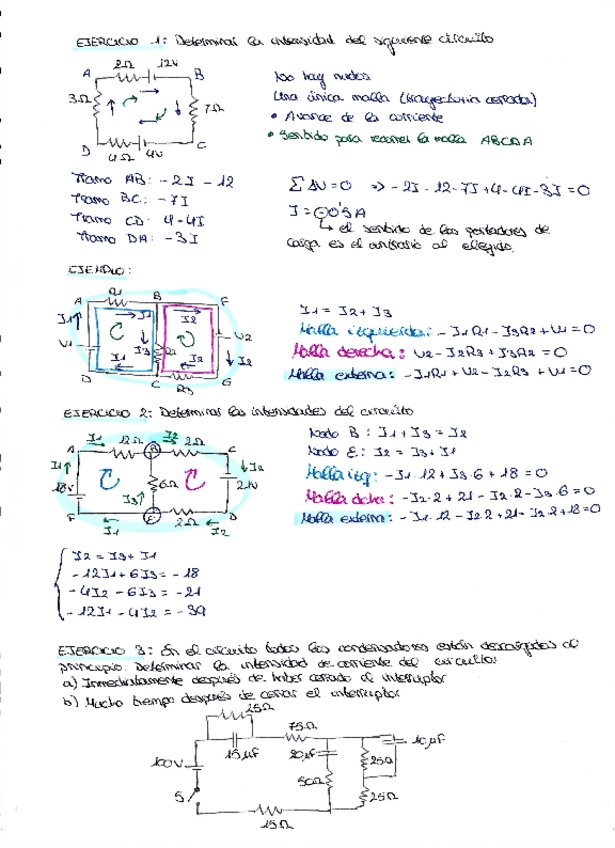 EJERCICIO 1: Determinar la intensidad del siguiente circuito
2Ω 12V
A B
3Ω 7Ω
D C
4Ω 4V
No hay nudos
Una única malla (trayectoria cerrada)
• Avance de la corriente
• Sentido para recorrer la malla ABCDA
Tramo AB: -2I - 12
Tramo BC: -7I
Tramo CD: 4-4I
Tramo DA: -3I
ΣΔV=0 => -2I-12-7I+4-4I-3I=0
I=-0'5A
↳ el sentido de los portadores de
carga es el contrario al elegido.
EJEMPLO:
R1
A B F
I1 I1 I2
V1 I3 R2 V2
I1 I2 I2
D C R3 G
I1 = I2+I3
Malla izquierda: -I1R1-I3R2+V1=0
Malla derecha: V2-I2R3+I3R2=0
Malla externa: -I1R1+V2-I2R3+V1=0
EJERCICIO 2: Determinar las intensidades del circuito
I1 12Ω I2 2Ω
A B C
I1 I2
18V 6Ω 21V
I3
F E 2Ω D
I1 I2
Nodo B: I1+I3=I2
Nodo E: I2=I3+I1
Malla izq: -I1·12+I3·6+18=0
Malla dcha: -I2·2+21-I2·2-I3·6=0
Malla externa: -I1·12-I2·2+21-I2·2+18=0
I2=I3+I1
-12I1+6I3=-18
-4I2-6I3=-21
-12I1-4I2=-39
EJERCICIO 3: En el circuito todos los condensadores están descargados al
principio. Determinar la intensidad de corriente del circuito:
a) Inmediatamente después de haber cerrado el interruptor
b) Mucho tiempo después de cerrar el interruptor
25Ω
75Ω
15μF 20μF 10μF
100V 25Ω
50Ω
S 25Ω
15Ω